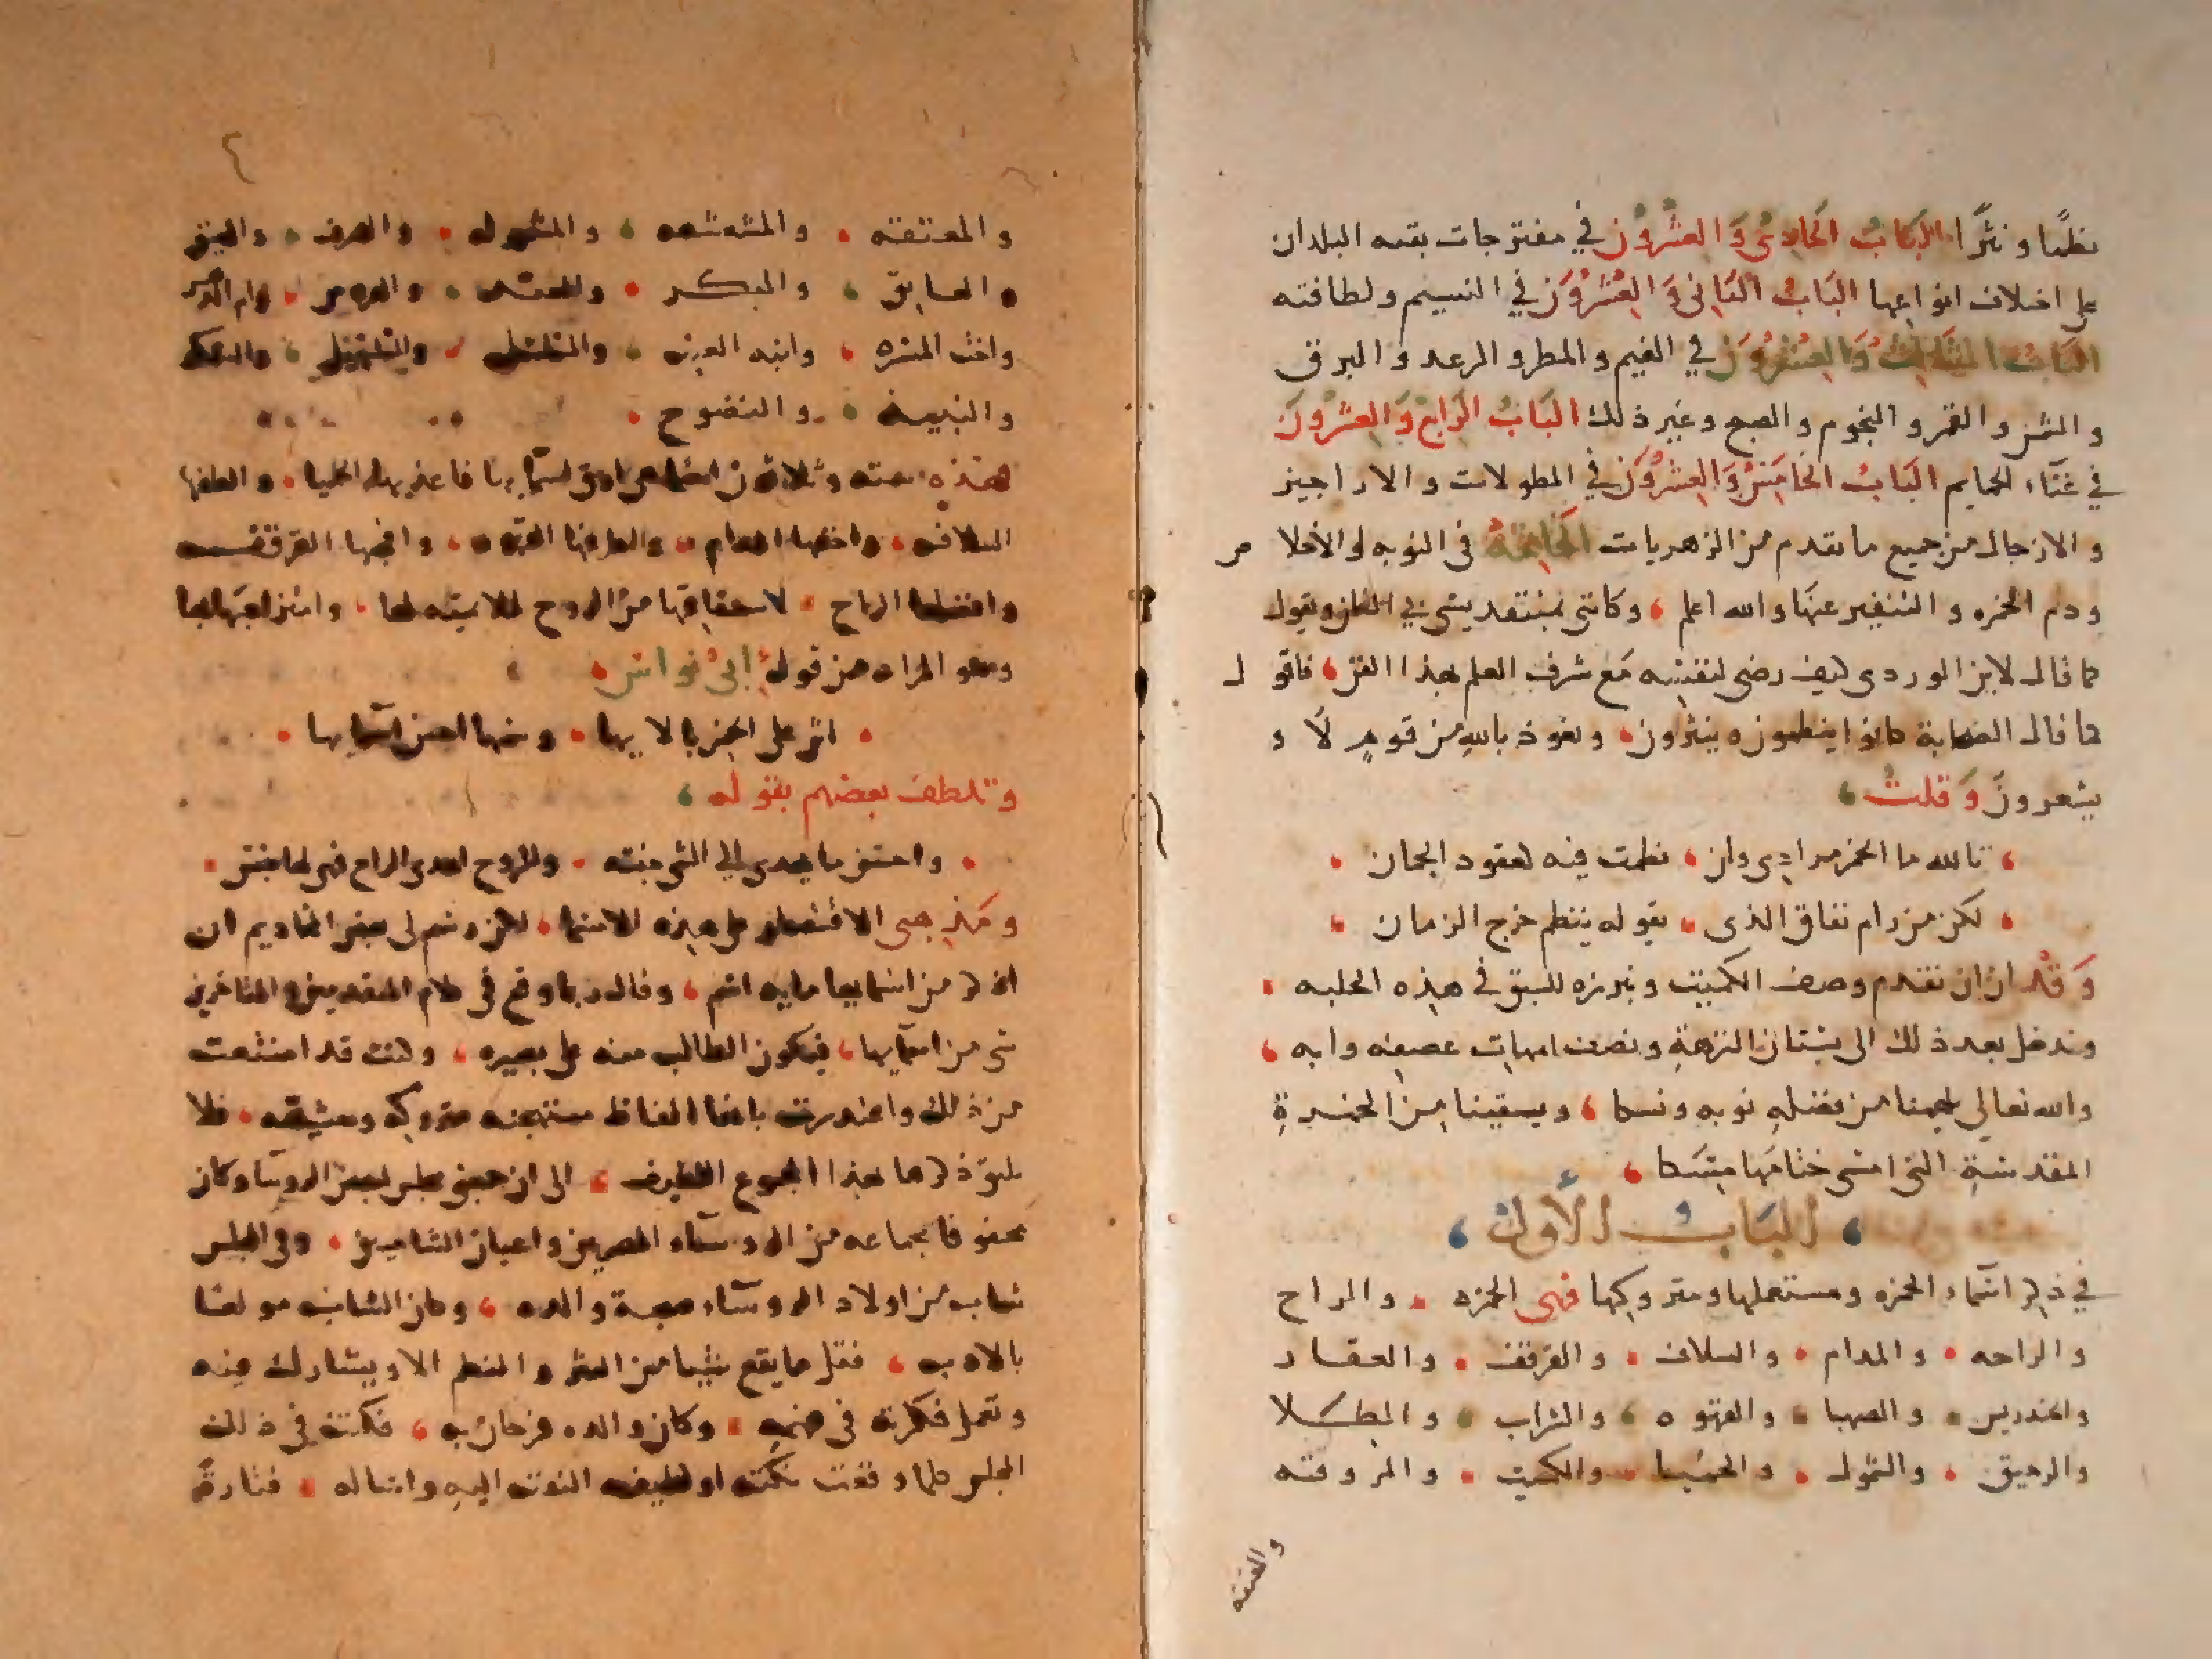 نظمًا ونثرًا الباب الحادى والعشرون في مفترجات بقيه البلدان
على اختلاف انواعها الباب الثانى والعشرون في النسيم ولطافته
الباب الثالث والعشرون في الغيم والمطر والرعد والبرق
والشمس والقمر والنجوم والصبح وغير ذلك الباب الرابع والعشرون
في غناء الحمايم الباب الخامس والعشرون في المطولات والاراجيز
والازجال من جميع ما تقدم من الزهريات الخاتمة في التوبه والاخلاص
وذم الخمره والتنفير عنها والله اعلم وكانى بمنتقد يشى في ويقول
كما قال لابن الوردى كيف رضى لنفسه مع شرف العلم بهذا الفن فاقول
كما قال الصحابة كانوا ينظمون وينثرون ونعوذ بالله من قوم لا
يشعرون وقلت
تالله ما الخمر مرادى وان نظمت فيه كعقود الجمان
لكن من رام نفاق الذى يقوله ينظم خرج الزمان
وقد ان ان نقدم وصف الكميت ونبرزه للسبق في هذه الحلبه
وندخل بعد ذلك الى بستان النزهة ونصف امهات عصفه وابه
والله تعالى يلهمنا من فضله توبه ونسكا ويسقينا من الخمرة
المقدسة التى امسى ختامها مسكا
الباب الأول
في ذكر اسماء الخمره ومستعملها ومتروكها فهى الخمره والراح
والراحه والمدام والسلاف والقرقف والعقار
والخندريس والصهبا والقهوه والشراب والطلا
والرحيق والشمول والحميا والكميت والمروقه
والمعتقه
٤
والمعتقه والمشعشعه والمشموله والصرف
والبكر وام الدهر
واخت المسره وابنه العنب والسلسل والسلسبيل
والنبيذ والنضوح
هذه سته وثلاثون اسما هى اصل اسمايها فاعذبها الحميا والطفها
السلافه واخفها المدام واظرفها القهوه وافخمها القرقف
وافضلها الراح لاشتقاقها من الروح
وهو المراد من قول ابى نواس
اثن على الخمر بالايها وسمها احسن اسمايها
وتلطف بعضهم بقوله
واحسن ما يهدى الى الشى جنسه وللروح اهدى الراح فهى لها جنس
ومذهبى الاقتصار على هذه الاسما لكن رسم لى بعض المخاديم ان
اذكر من اسمايها مايه اسم وقال ربما وقع في كلام المتقدمين والمتاخرين
شى من اسمايها فيكون الطالب منه على بصيره وكنت قد امتنعت
من ذلك واعتذرت بانها الفاظ مستهجنه متروكه فلا
يليق ذكرها بهذا المجموع اللطيف الى ان جمعنى مجلس لبعض الروسا وكان
محفوفا بجماعه من الروساء المصريين واعيان الشاميين وفى المجلس
شاب من اولاد الروساء صحبة والده وكان الشاب مولعا
بالادب فقل ما يقع شيا من النثر والنظم الا ويشارك فيه
ويعمل فكرته فى وكان والده فرحان به فكنت في ذلك
المجلس كلما وقعت نكته او لطيفه التفت اليه واساله فتارة